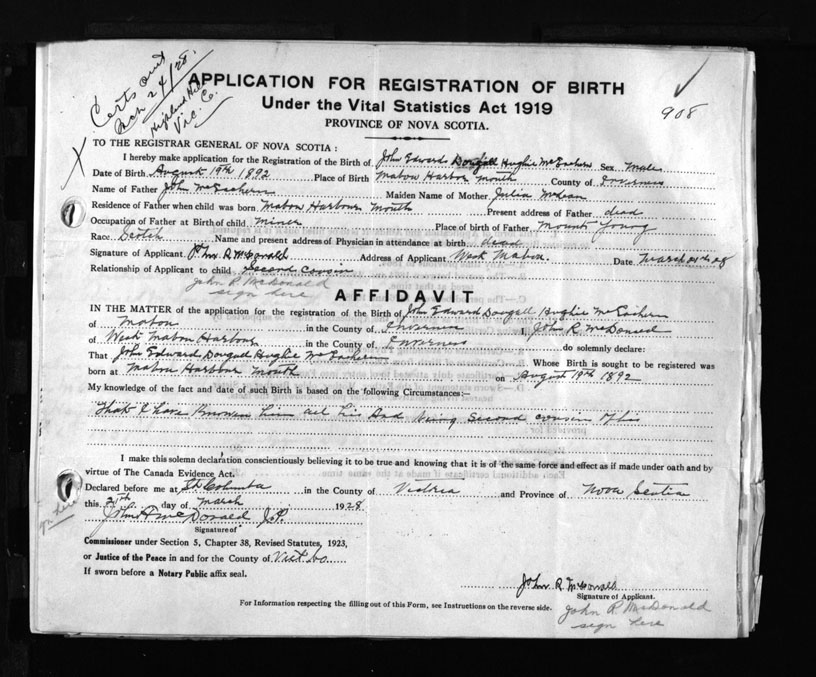 Certs out
Mch 24/28.
Highland Hill
Vic. Co.
908
APPLICATION FOR REGISTRATION OF BIRTH
Under the Vital Statistics Act 1919
PROVINCE OF NOVA SCOTIA.
X
TO THE REGISTRAR GENERAL OF NOVA SCOTIA :
I hereby make application for the Registration of the Birth of John Edward Dougall Hughie McEachern Sex Male
Date of Birth August 19th 1892 Place of Birth Mabou Harbor mouth County of Inverness
Name of Father John McEachern Maiden Name of Mother Julia McLean
Residence of Father when child was born Mabou Harbour Mouth Present address of Father dead
Occupation of Father at Birth of child Miner Place of birth of Father Mount Young
Race Scotch Name and present address of Physician in attendance at birth dead
Signature of Applicant John R. McDonald Address of Applicant West Mabou. Date March
Relationship of Applicant to child Second Cousin
John R McDonald
sign here
AFFIDAVIT
IN THE MATTER of the application for the registration of the Birth of John Edward Dougall Hughie McEachern
of Mabou in the County of Inverness I, John R McDonald
of West Mabou Harbour in the County of Inverness do solemnly declare:
That John Edward Dougall Hughie McEachern Whose Birth is sought to be registered was
born at Mabou Harbour Mouth on August 19th 1892
My knowledge of the fact and date of such Birth is based on the following Circumstances:—
That I have Known him all his And being Second cousin of his
I make this solemn declaration conscientiously believing it to be true and knowing that it is of the same force and effect as if made under oath and by
virtue of The Canada Evidence Act.
Declared before me at St Columba in the County of Victoria and Province of Nova Scotia
this day of March 1928.
John McDonald J.P.
Signature of
Commissioner under Section 5, Chapter 38, Revised Statutes, 1923,
or Justice of the Peace in and for the County of Vict Co
If sworn before a Notary Public affix seal.
John R. McDonald
Signature of Applicant.
For Information respecting the filling out of this Form, see Instructions on the reverse side.
John R McDonald
sign here